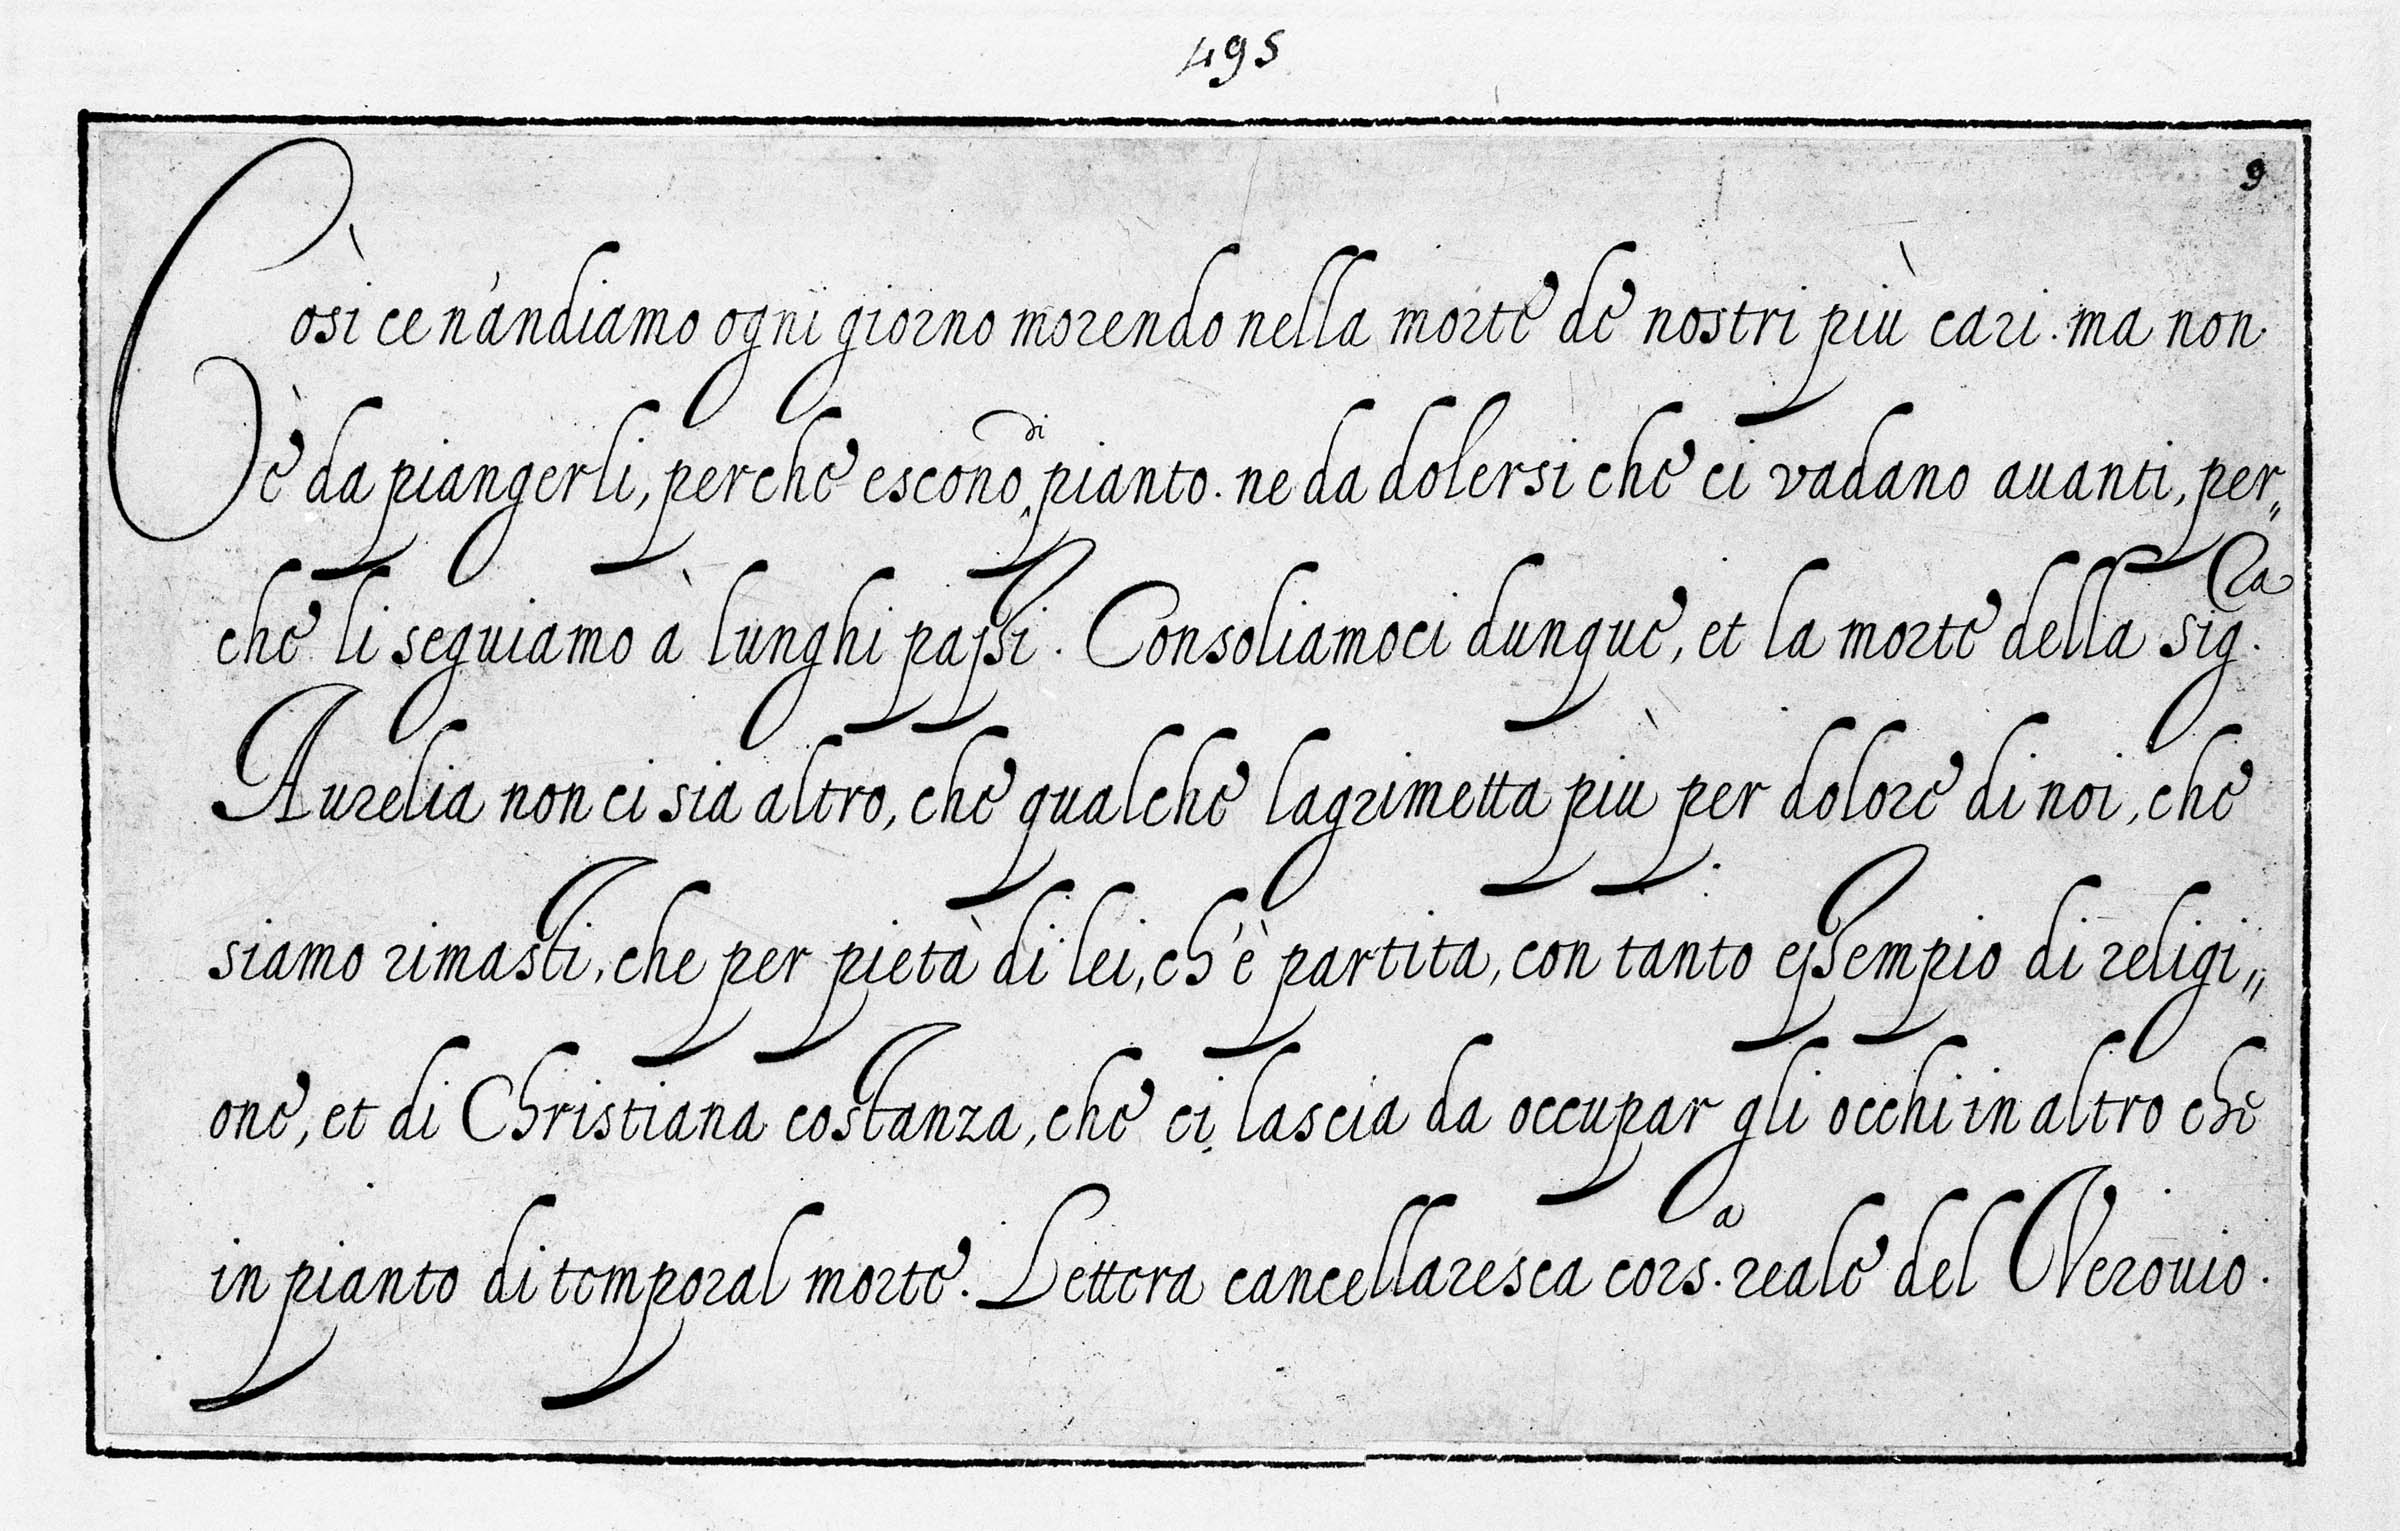 495
9
Così ce n'andiamo ogni giorno morendo nella morte de nostri più cari. ma non
è da piangerli, perche escono di pianto. ne da dolersi che ci vadano auanti, per„
che li seguiamo à lunghi passi. Consoliamoci dunque, et la morte della sig.ra
Aurelia non ci sia altro, che qualche lagrimetta più per dolore di noi, che
siamo rimasti, che per pietà di lei, ch'è partita, con tanto essempio di religi„
one, et di Christiana costanza, che ci lascia da occupar gli occhi in altro che
in pianto di temporal morte. Lettera cancellaresca cors.a reale del Verouio.